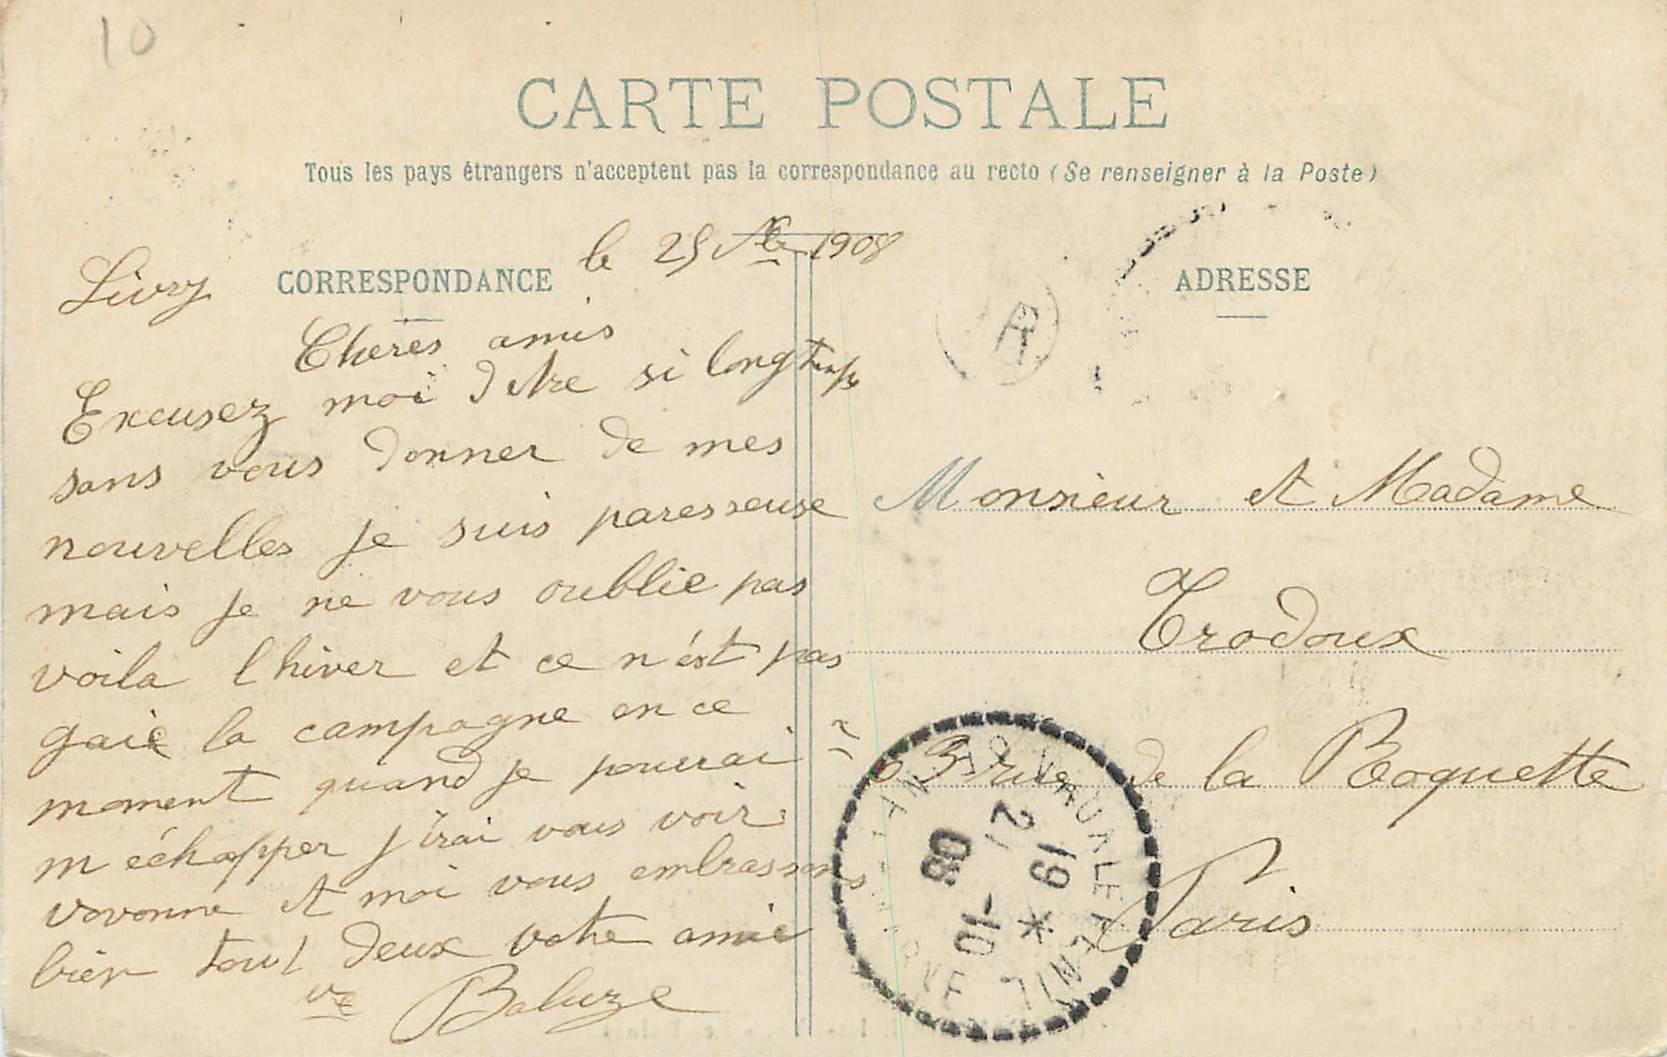 10
CARTE POSTALE
Tous les pays étrangers n'acceptent pas la correspondance au recto (Se renseigner à la Poste)
CORRESPONDANCE
Livry le 25 1908
Cheres amis
Excusez moi d'etre si longtemps
sans vous donner de mes
nouvelles je suis paresseuse
mais je ne vous oublie pas
voila l'hiver et ce n'ést pas
gaie la campagne en ce
moment quand je pourrai
m échapper j'irai vous voir
vovonne et moi vous embrassons
bien tout deux votre amie
ve Baluze
ADRESSE
R
Monsieur et Madame
Trodoux
rue de la Roquette
Paris
19 *
-10
08